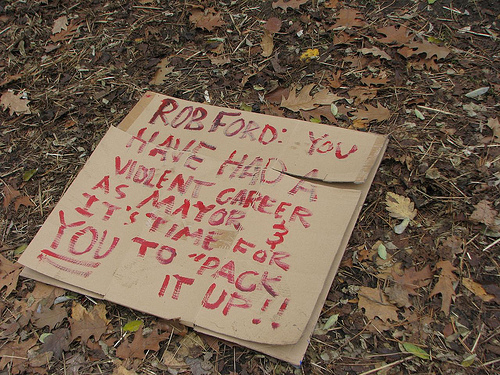 ROB FORD: YOU
HAVE HAD A
VIOLENT CAREER
AS MAYOR &
IT'S TIME FOR
YOU TO "PACK
IT UP!!